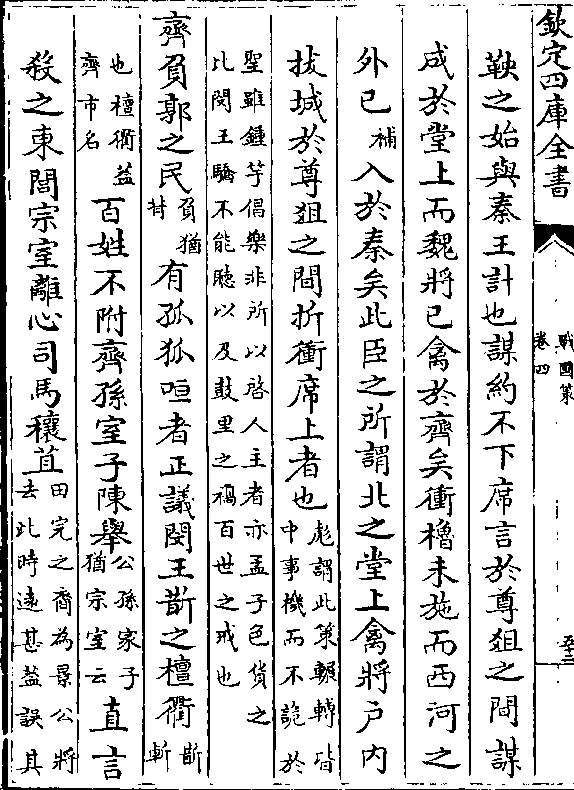 欽定四庫全書
戰國策
卷四
鞅之始與秦王計也謀約不下席言於尊俎之間謀
成於堂上而魏將已禽於齊矣衝櫓未施而西河之
外已補入於秦矣此臣之所謂北之堂上禽將戶內
拔城於尊俎之間折衝席上者也
彪謂此策輾轉皆
中事機而不詭於
聖雖鍾竽倡樂非所以啓人主者亦孟子色貨之
比閔王驕不能聽以及鼓里之禍百世之戒也
齊負郭之民
負猶
背
有孤狐咺者正議閔王斮之檀衢
斮
斬
也檀衢蓋
齊市名
百姓不附齊孫室子陳舉
公孫家子
猶宗室云
直言
殺之東閭宗室離心司馬穰苴
田完之裔為景公將
去此時遠甚蓋誤其